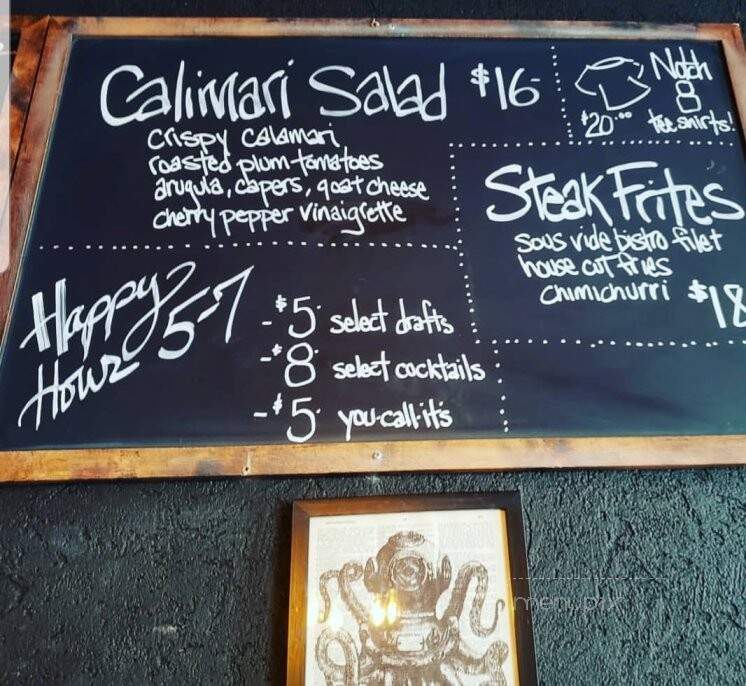 Calimari Salad $16
crispy calamari
roasted plum tomatoes
arugula, capers, goat cheese
cherry pepper vinaigrette
Notch
8
$20.00 tee shirts!
Steak Frites
sous vide bistro filet
house cut fries
chimichurri $18
Happy
Hour 5-7
-$5 select drafts
-$8 select cocktails
-$5 you-call-it's